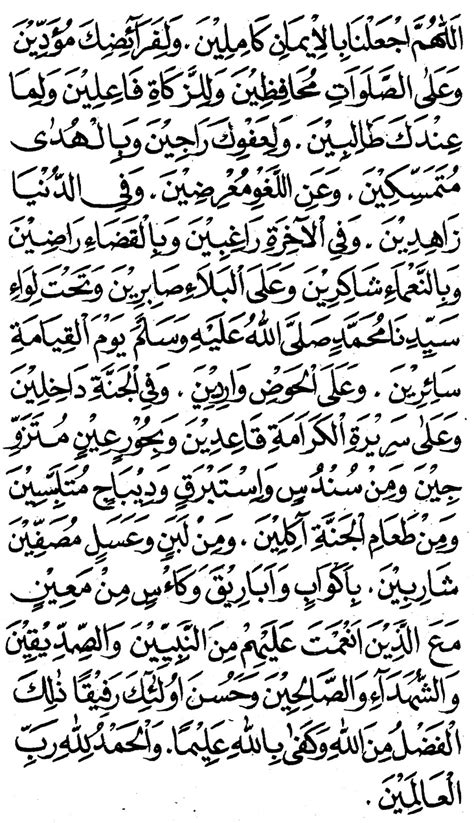 اَللّٰهُمَّ اجْعَلْنَا بِالْاِيْمَانِ كَامِلِيْنَ . وَلِفَرَآئِضِكَ مُؤَدِّيْنَ
وَعَلَى الصَّلَوَاتِ مُحَافِظِيْنَ وَلِلزَّكَاةِ فَاعِلِيْنَ وَلِمَا
عِنْدَكَ طَالِبِيْنَ . وَلِعَفْوِكَ رَاجِيْنَ وَبِالْهُدٰى
مُتَمَسِّكِيْنَ . وَعَنِ اللَّغْوِ مُعْرِضِيْنَ . وَفِى الدُّنْيَا
زَاهِدِيْنَ . وَفِى الْآخِرَةِ رَاغِبِيْنَ وَبِالْقَضَاءِ رَاضِيْنَ
وَبِالنَّعْمَاءِ شَاكِرِيْنَ وَعَلَى الْبَلَاءِ صَابِرِيْنَ وَتَحْتَ لِوَاءِ
سَيِّدِنَا مُحَمَّدٍ صَلَّى اللّٰهُ عَلَيْهِ وَسَلَّمَ يَوْمَ الْقِيَامَةِ
سَائِرِيْنَ . وَعَلَى الْحَوْضِ وَارِدِيْنَ . وَفِى الْجَنَّةِ دَاخِلِيْنَ
وَعَلٰى سَرِيْرَةِ الْكَرَامَةِ قَاعِدِيْنَ وَبِحُوْرٍ عِيْنٍ مُتَزَوِّ
جِيْنَ وَمِنْ سُنْدُسٍ وَاِسْتَبْرَقٍ وَدِيْبَاجٍ مُتَلَبِّسِيْنَ
وَمِنْ طَعَامِ الْجَنَّةِ آكِلِيْنَ . وَمِنْ لَبَنٍ وَعَسَلٍ مُصَفَّيْنِ
شَارِبِيْنَ . بِاَكْوَابٍ وَاَبَارِيْقَ وَكَأْسٍ مِنْ مَعِيْنٍ
مَعَ الَّذِيْنَ اَنْعَمْتَ عَلَيْهِمْ مِنَ النَّبِيِّيْنَ وَالصِّدِّيْقِيْنَ
وَالشُّهَدَآءِ وَالصَّالِحِيْنَ وَحَسُنَ اُولٰئِكَ رَفِيْقًا ذٰلِكَ
الْفَضْلُ مِنَ اللّٰهِ وَكَفٰى بِاللّٰهِ عَلِيْمًا . وَالْحَمْدُ لِلّٰهِ رَبِّ
الْعَالَمِيْنَ .